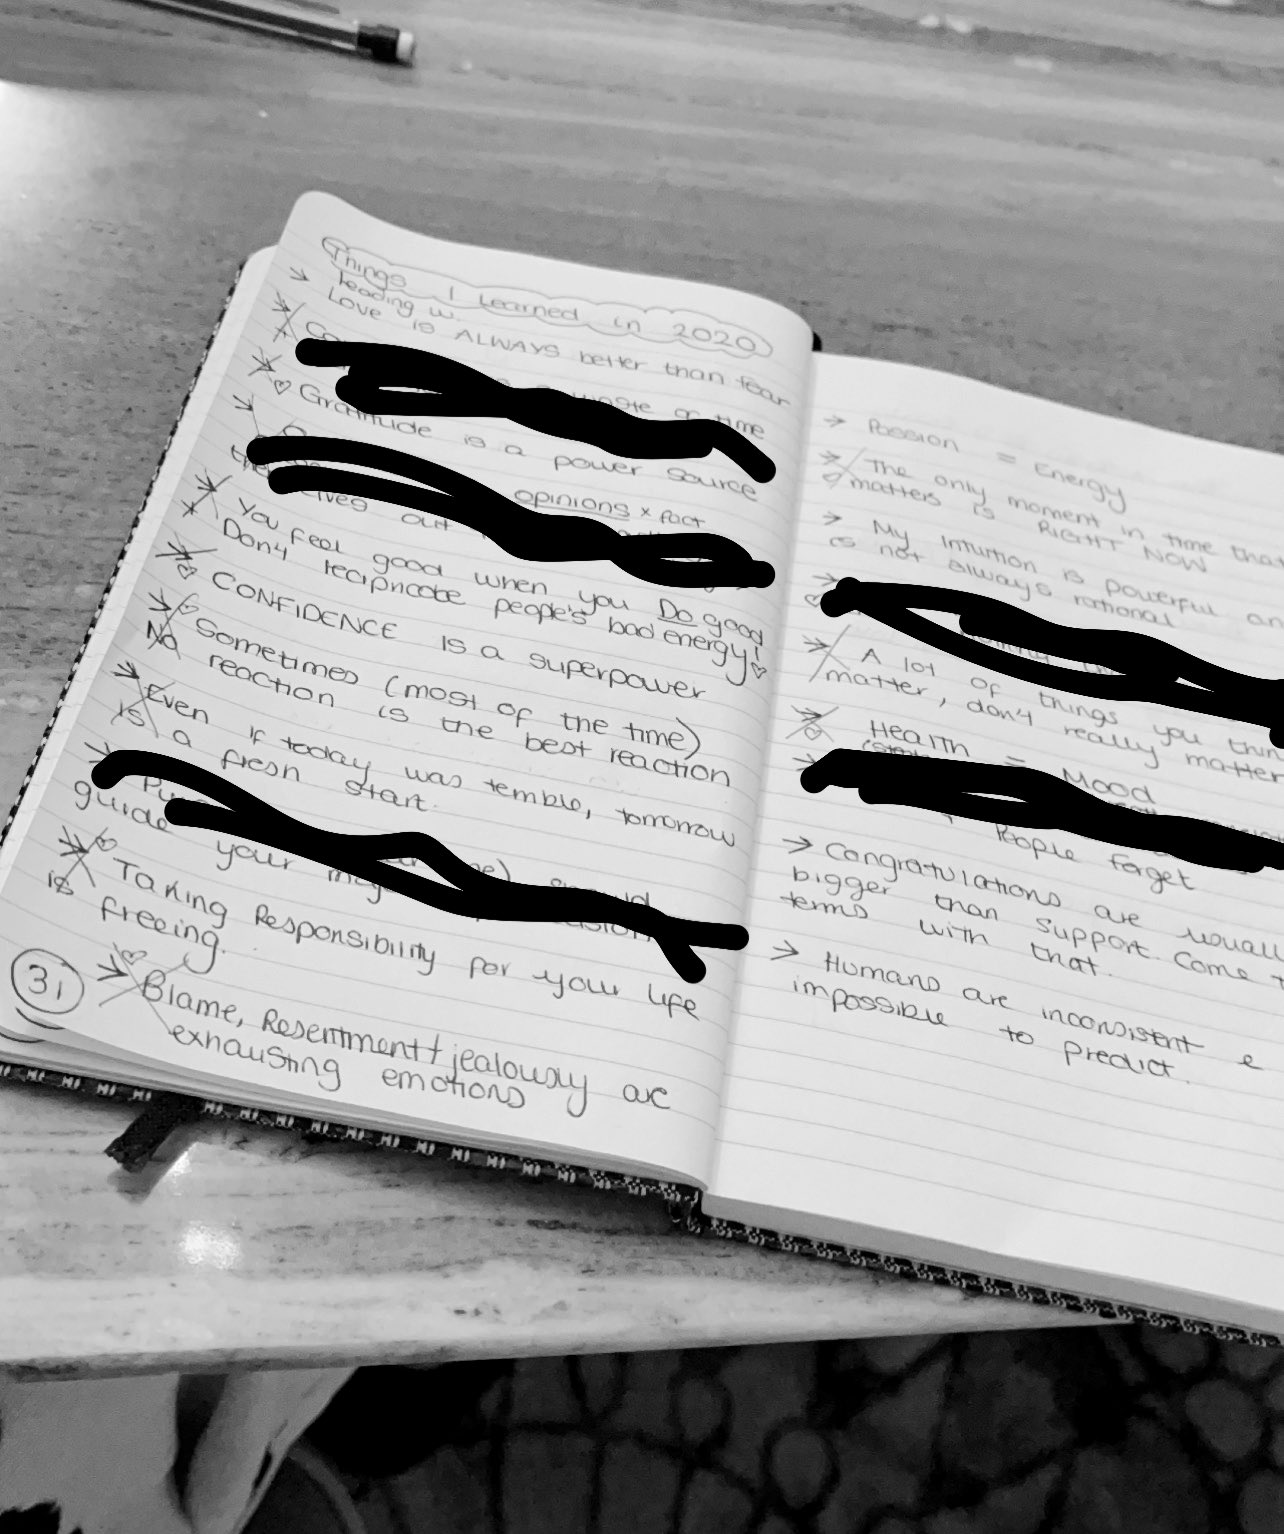 Things I Learned in 2020
→ leading w.
Love is ALWAYS better than fear
waste of time
Gratitude is a power source
opinions x fact
out
You feel good when you Do good
Don't recipricate people's bad energy!
CONFIDENCE is a superpower
Sometimes (most of the time)
No reaction is the best reaction
Even if today was terrible, tomorrow
is a fresh start.
guide your
Taking Responsibility for your life
is freeing.
31
Blame, Resentment + jealousy are
exhausting emotions
→ Passion = Energy
→ The only moment in time that
matters is RIGHT NOW
→ My Intuition is powerful an
is not always rational
→ A lot of things you thin
matter, don't really matter
Health = Mood
People forget
→ Congratulations are usuall
bigger than support. Come t
terms with that.
→ Humans are inconsistent e
impossible to predict.